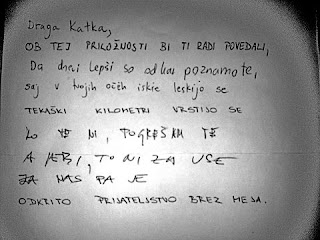 Draga Katka,
OB TEJ PRILOŽNOSTI BI TI RADI POVEDALI,
Da dnevi lepši so odkar poznamo te,
saj v tvojih očeh iskre leskijo se
TEKAŠKI KILOMETRI VRSTIJO SE
KO TE NI, POGREŠAM TE
A JEBI, TO NI ZA VSE
ZA NAS PA JE
ODKRITO PRIJATELJSTVO BREZ MEJA.